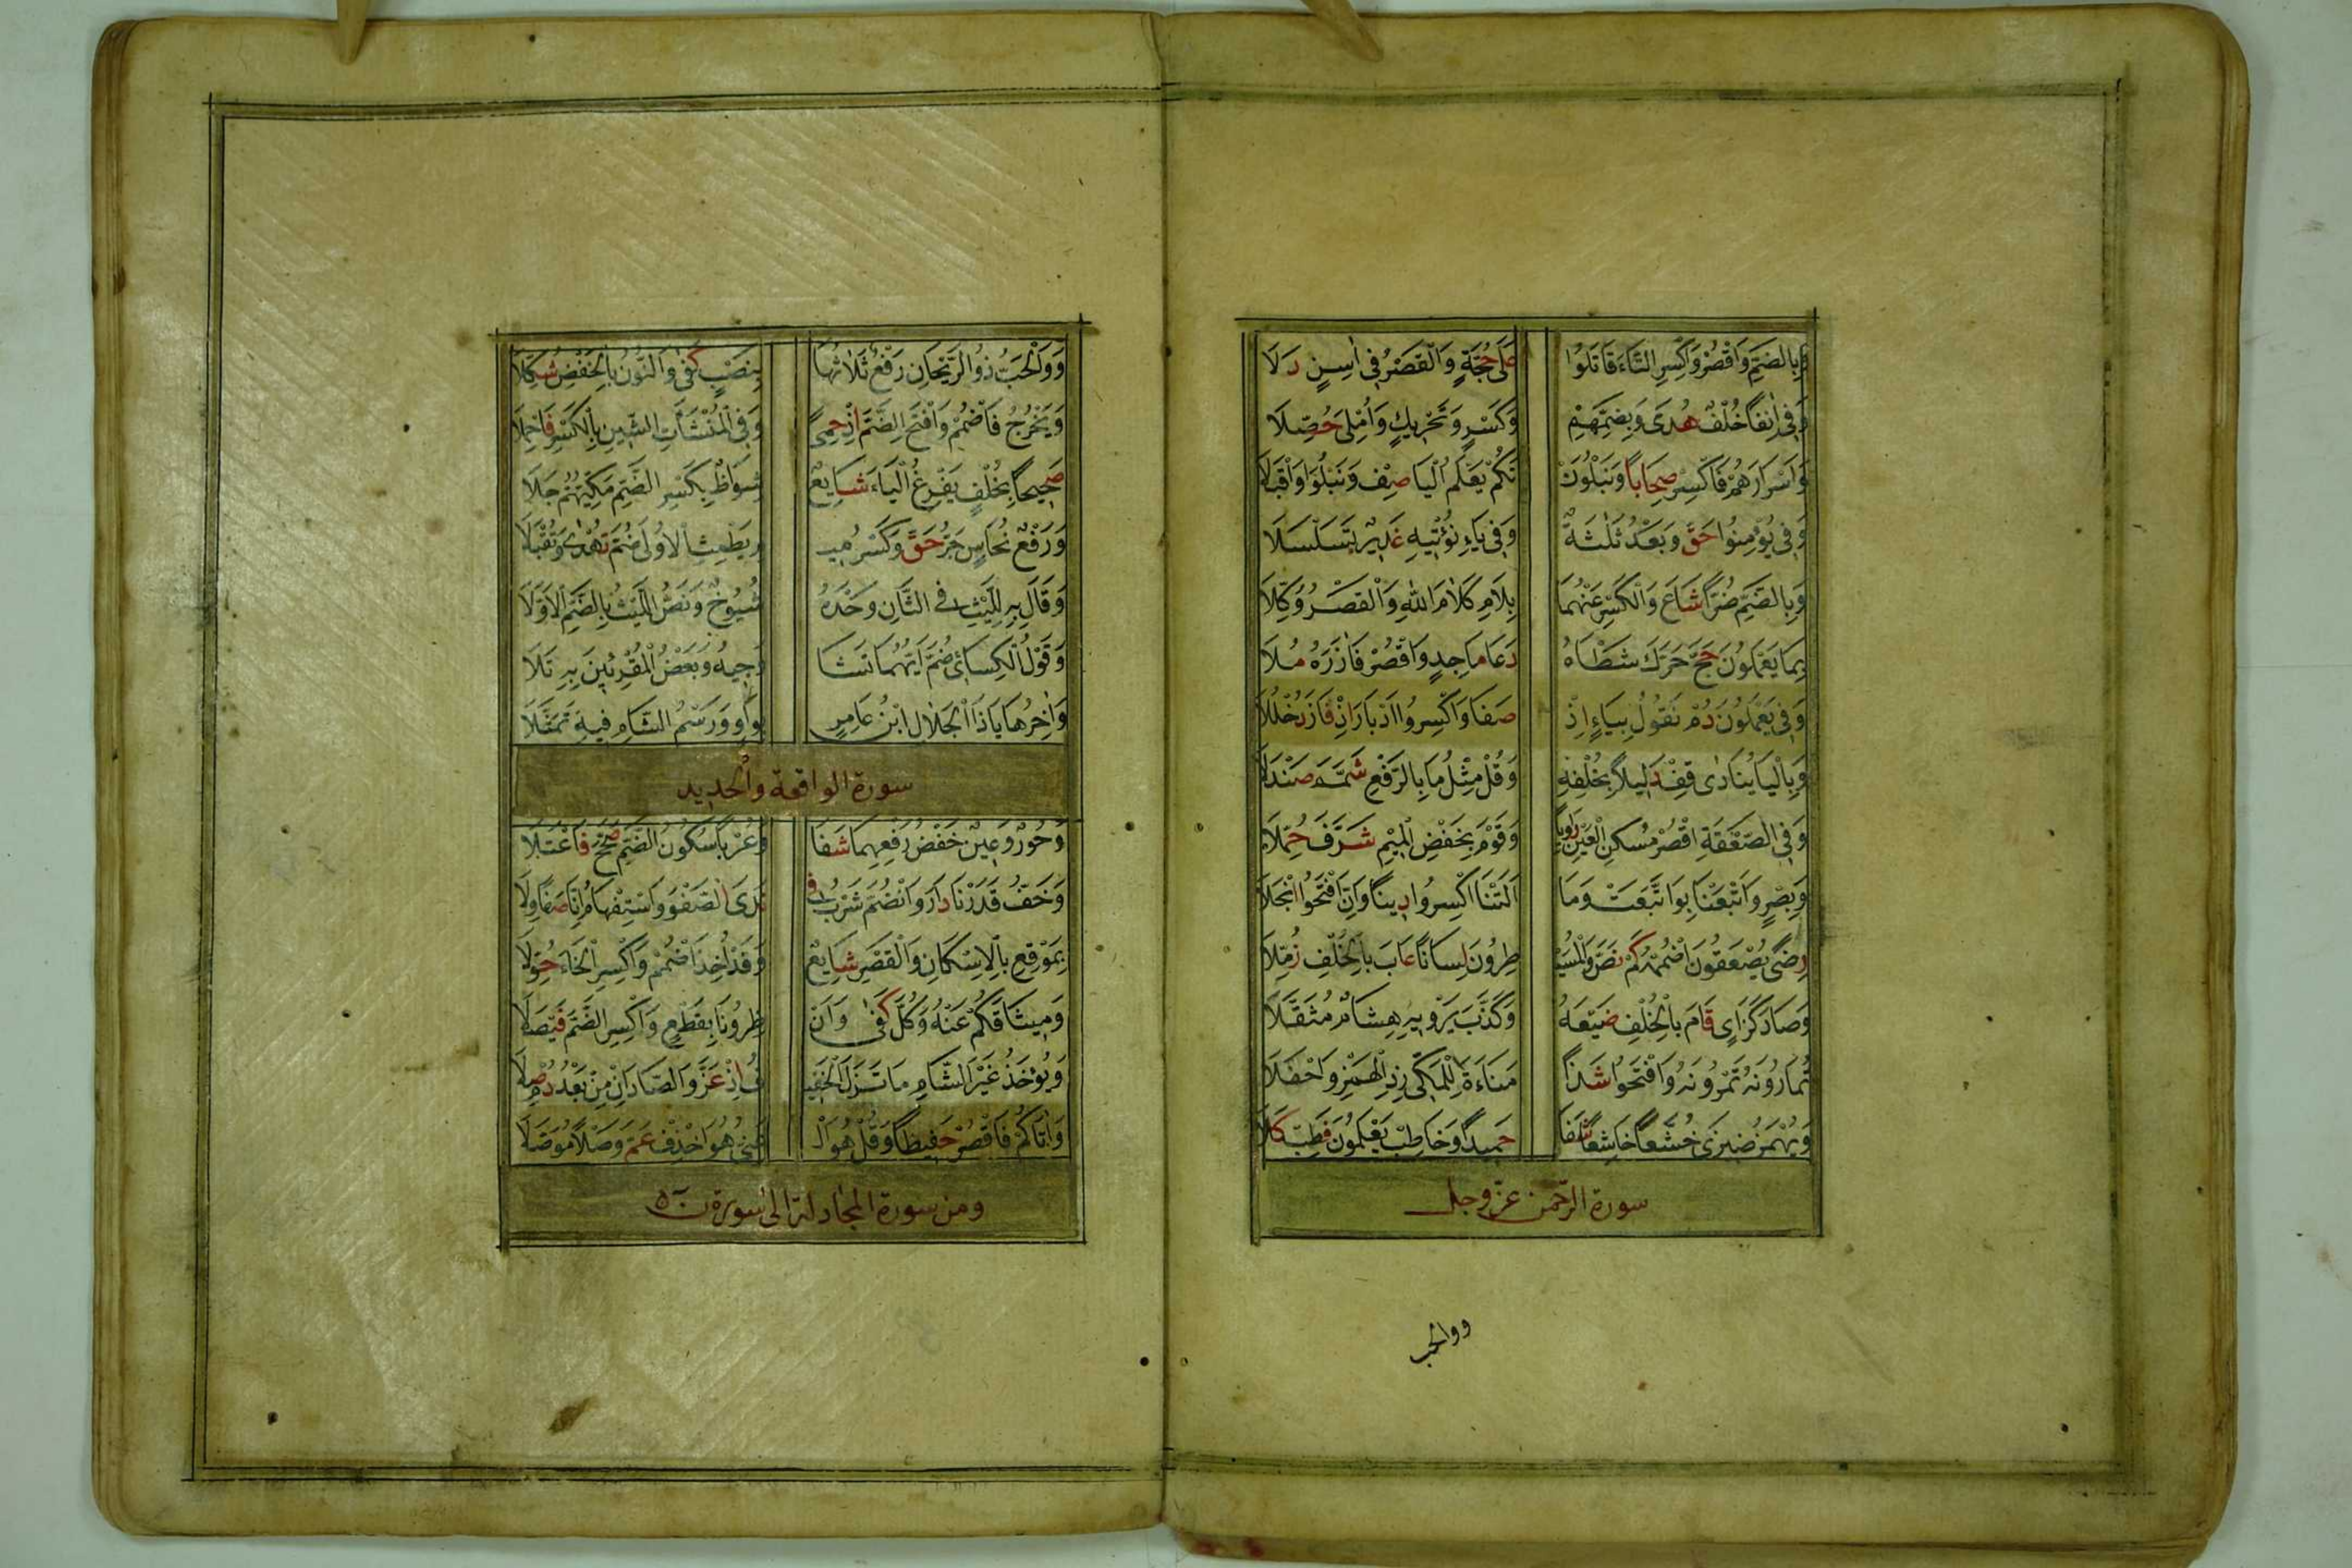 وَبِالضَّمِّ وَاقْصُرْ وَاكْسِرِ التَّاءَ قَاتَلُوا عَلَى حُجَّةٍ وَالْقَصْرُ فِي اٰسِنٍ دَلَا
وَفِي اٰنِفًا خُلْفٌ هُدَى وَبِضَمِّهِمْ وَكَسْرٍ وَتَحْرِيكٍ وَاُمْلِيَ حُصِّلَا
وَاَسْرَارَهُمْ فَاكْسِرْ صِحَابًا وَنَبْلُوَنْ نَكُمْ يَعْلَمُ الْيَا صِفْ وَنَبْلُوَا وَاقْبَلَا
وَفِي يُؤْمِنُوا حَقٌّ وَبَعْدُ ثَلٰثَةٌ وَفِي يَاءِ نُؤْتِيهِ غَدِيرٌ تَسَلْسَلَا
وَبِالضَّمِّ ضُرًّا شَاعَ وَالْكَسْرُ عَنْهُمَا بِلَامِ كَلَامَ اللّٰهِ وَالْقَصْرُ وُكِّلَا
بِمَا يَعْمَلُونَ حَجَّ حَرَّكَ شَطْأَهُ دَعَا مَاجِدٍ وَاقْصُرْ فَاٰزَرَهُ مُلَا
وَفِي يَعْمَلُونَ دُمْ نَقُولُ بِيَاءٍ اِذْ صَفَا وَاكْسِرُوا اَدْبَارَ اِذْ فَازَ دُخْلُلَا
وَبِالْيَا يُنَادِى قِفْ دَلِيلًا بِخُلْفِهِ وَقُلْ مِثْلُ مَا بِالرَّفْعِ شَمَّمَ صَنْدَلَا
وَفِي الصَّعْقَةِ اقْصُرْ مُسْكِنَ الْعَيْنِ رَاوِيًا وَقَوْمَ بِخَفْضِ الْمِيمِ شَرَّفَ حُمَّلَا
وَبَصْرٍ وَاَتْبَعْنَا بِوَاتَّبَعَتْ وَمَا اَلَتْنَا اكْسِرُوا دِينًا وَاِنَّ افْتَحُوا انْجَلَا
رِضًى يُصْعَقُونَ اضْمُمْهُ كَمْ نَصَّ وَالْمُسَيْـ طِرُونَ لِسَانًا عَابَ بِالْخُلْفِ زُمِّلَا
وَصَادَ كَزَاىٍ قَامَ بِالْخُلْفِ ضَبْعُهُ وَكَذَّبَ يَرْوِيهِ هِشَامٌ مُثَقَّلَا
تُمَارُونَهُ تَمْرُونَهُ وَافْتَحُوا شَذًا مَنَاءَةَ لِلْمَكِّي زِدِ الْهَمْزَ وَاحْفَلَا
وَيُهْمَزُ ضِيزَى خُشَّعًا خَاشِعًا شَفَا حَمِيدًا وَخَاطِبْ يَعْلَمُونَ فَطِبْ كَلَا
سورة الرّحمن عزّ وجل
ووالحب
وَوَالْحَبُّ ذُو الرَّيْحَانِ رَفْعُ ثَلَاثِهَا بِنَصْبٍ كَفٰى وَالنُّونُ بِالْخَفْضِ شُكِّلَا
وَيَخْرُجُ فَاضْمُمْ وَافْتَحِ الضَّمَّ اِذْ حِمًى وَفِي الْمُنْشَاٰتِ الشِّينُ بِالْكَسْرِ فَاحْمِلَا
صَحِيحًا بِخُلْفٍ يَفْرُغُ الْيَاءُ شَايِعٌ شُوَاظٌ بِكَسْرِ الضَّمِّ مَكِّيُّهُمْ جَلَا
وَرَفْعَ نُحَاسٌ جَرَّ حَقٌّ وَكَسْرَ مِيـ ـمِ يَطْمِثْ الْاُولَى ضُمَّ تُهْدٰى وَتُقْبَلَا
وَقَالَ بِهِ لِلَّيْثِ فِي الثَّانِ وَحْدَهُ شُيُوخٌ وَنَصُّ اللَّيْثِ بِالضَّمِّ الْاَوَّلَا
وَقَوْلُ الْكِسَائِي ضُمَّ اَيَّهُمَا تَشَا وَجِيهٌ وَبَعْضُ الْمُقْرِئِينَ بِهِ تَلَا
وَاٰخِرُهَا يَا ذَا الْجَلَالِ ابْنُ عَامِرٍ بِوَاوٍ وَرَسْمُ الشَّامِ فِيهِ تَمَثَّلَا
سورة الواقعة والحديد
وَحُورٌ وَعِينٌ خَفْضُ رَفْعِهِمَا شَفَا وَعُرْبًا سُكُونُ الضَّمِّ صُحِّحَ فَاعْتَلَا
وَخَفُّ قَدَرْنَا دَارَ وَانْضَمَّ شُرْبَ فِي نَدَى الصَّفْوِ وَاسْتِفْهَامُ اِنَّا صَفَا وِلَا
بِمَوْقِعِ بِالْاِسْكَانِ وَالْقَصْرِ شَايِعٌ وَقَدْ اُخِذَ اضْمُمْ وَاكْسِرِ الْخَاءَ حُوَّلَا
وَمِيثَاقُكُمْ عَنْهُ وَكُلٌّ كَفٰى وَاَنْـ ظِرُونَا بِقَطْعٍ وَاكْسِرِ الضَّمَّ فَيْصَلَا
وَيُؤْخَذُ غَيْرُ الشَّامِ مَا نَزَلَ الْخَفِيـ فُ اِذْ عَزَّ وَالصَّادَانِ مِنْ بَعْدُ دُمْ صِلَا
وَاٰتَاكُمُ فَاقْصُرْ حَفِيظًا وَقُلْ هُوَ الْـ غَنِيُّ هُوَ احْذِفْ عَمَّ وَصْلًا مُوَصَّلَا
ومن سورة المجادلة الى سورة ن